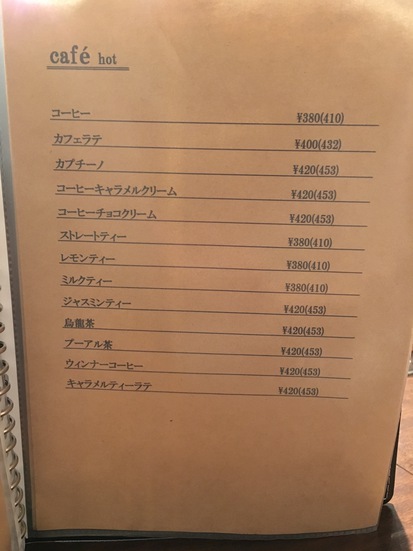 café hot
コーヒー ¥380(410)
カフェラテ ¥400(432)
カプチーノ ¥420(453)
コーヒーキャラメルクリーム ¥420(453)
コーヒーチョコクリーム ¥420(453)
ストレートティー ¥380(410)
レモンティー ¥380(410)
ミルクティー ¥380(410)
ジャスミンティー ¥420(453)
烏龍茶 ¥420(453)
プーアル茶 ¥420(453)
ウィンナーコーヒー ¥420(453)
キャラメルティーラテ ¥420(453)